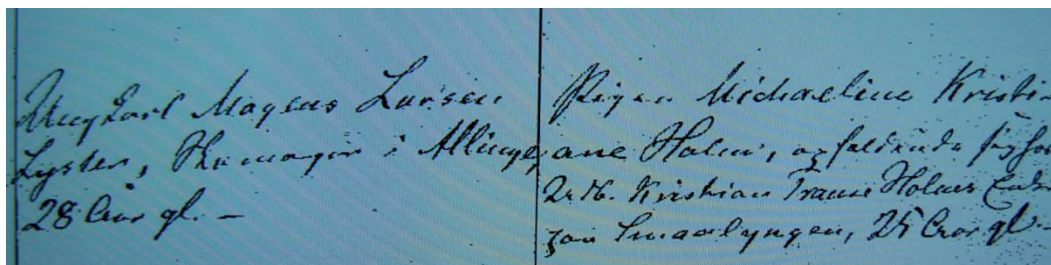 Ungkarl Mogens Larsen
Lyster, Skomager i Allinge,
28 Aar gl. –
Pigen Michaeline Kristi-
ane Holm, opholdende sig hos
Kristian Holms Enke
paa Smaalyngen, 25 Aar gl. –